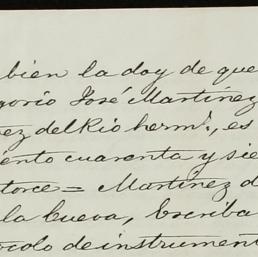 bien la doy de que
gorio José Martinez
ez del Rio herms., es
ento cuarenta y sie
torce = Martinez d
la Cueva, Escriba
ocolo de instrument